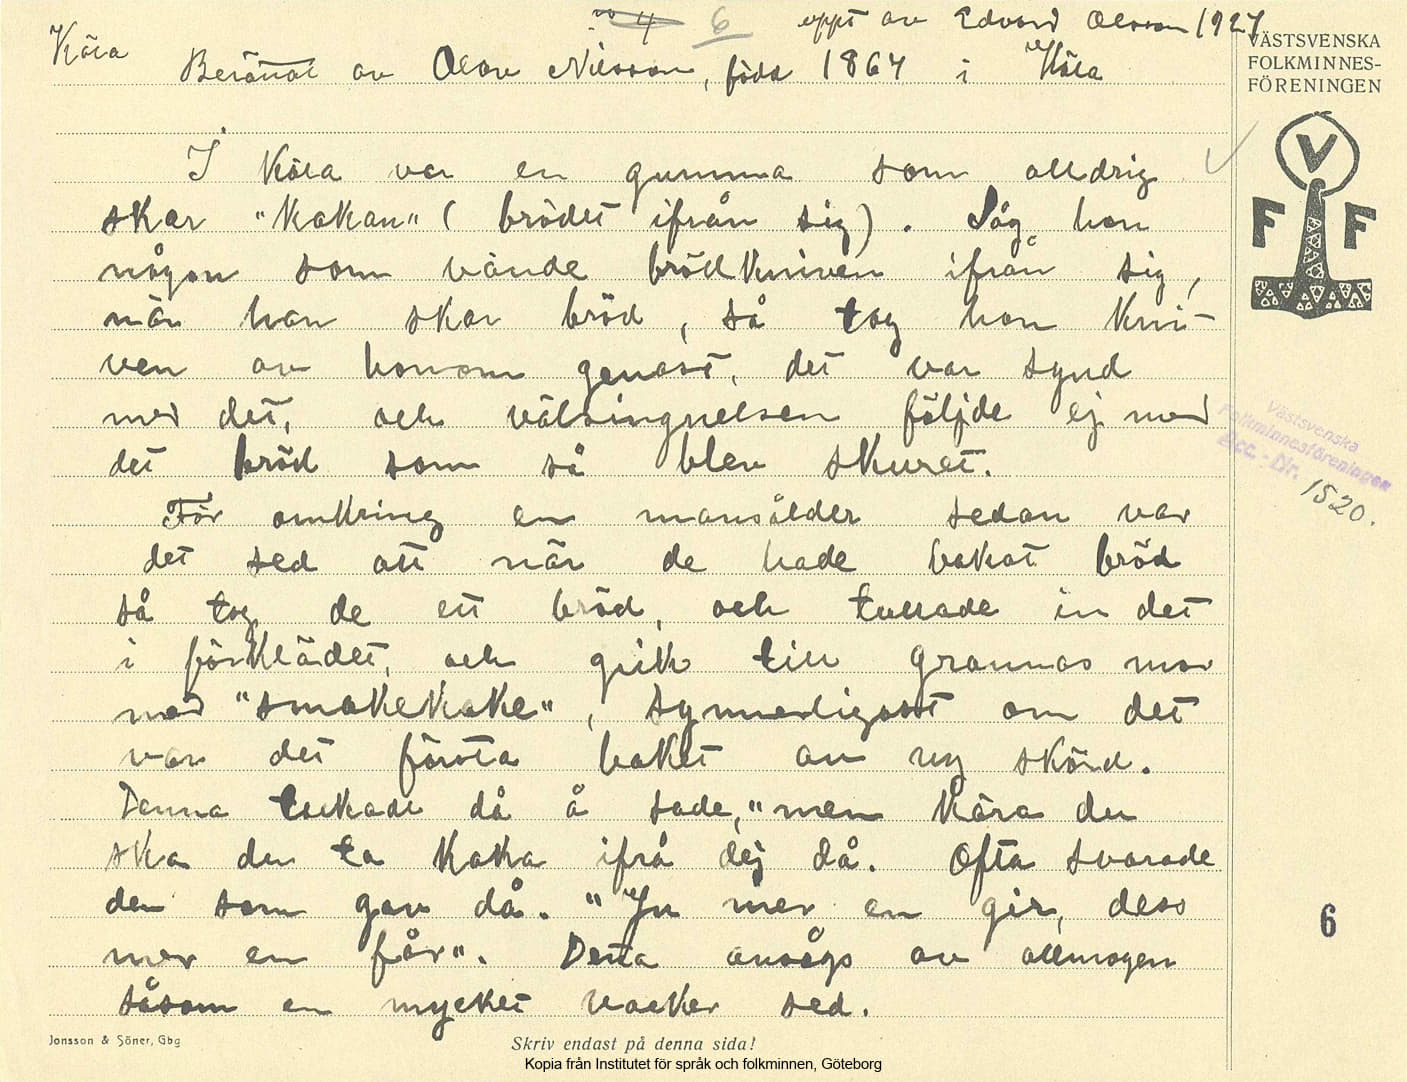 no 4 6 uppt av Edvard Olsson 1927
Köla
Berättat av Olov Nilsson, född 1864 i Köla
VÄSTSVENSKA
FOLKMINNES-
FÖRENINGEN
V
F F
I Köla var en gumma som alldrig
skar "kakan" (brödet ifrån sig). Såg hon
någon som vände brödkniven ifrån sig,
när han skar bröd, så tog hon kni-
ven av honom genast, det var synd
med det, och välsingnelsen följde ej med
det bröd som så blev skuret.
Västsvenska
Folkminnesföreningen
Acc.-Nr. 1520.
För omkring en mansålder sedan var
det sed att när de hade bakat bröd
så tog de ett bröd, och tullade in det
i förklädet, och gick till grannas mor
med "smakekake", synnerligast om det
var det första baket av ny skörd.
Denna tackade då å sade, "men kära du
ska du ta kaka ifrå dej då. Ofta svarade
den som gav då. "Ju mer en gir, dess
mer en får". Detta ansågs av allmogen
såsom en mycket vacker sed.
6
Jonsson & Söner, Gbg
Skriv endast på denna sida!
Kopia från Institutet för språk och folkminnen, Göteborg